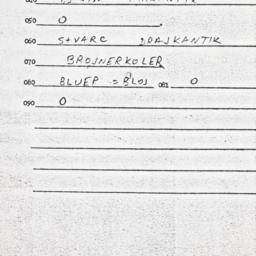 050 0
060 S+VARC DASKANTIK
070 BROJNERKOLER
080 BLUEP = BLOJ 081 0
090 0